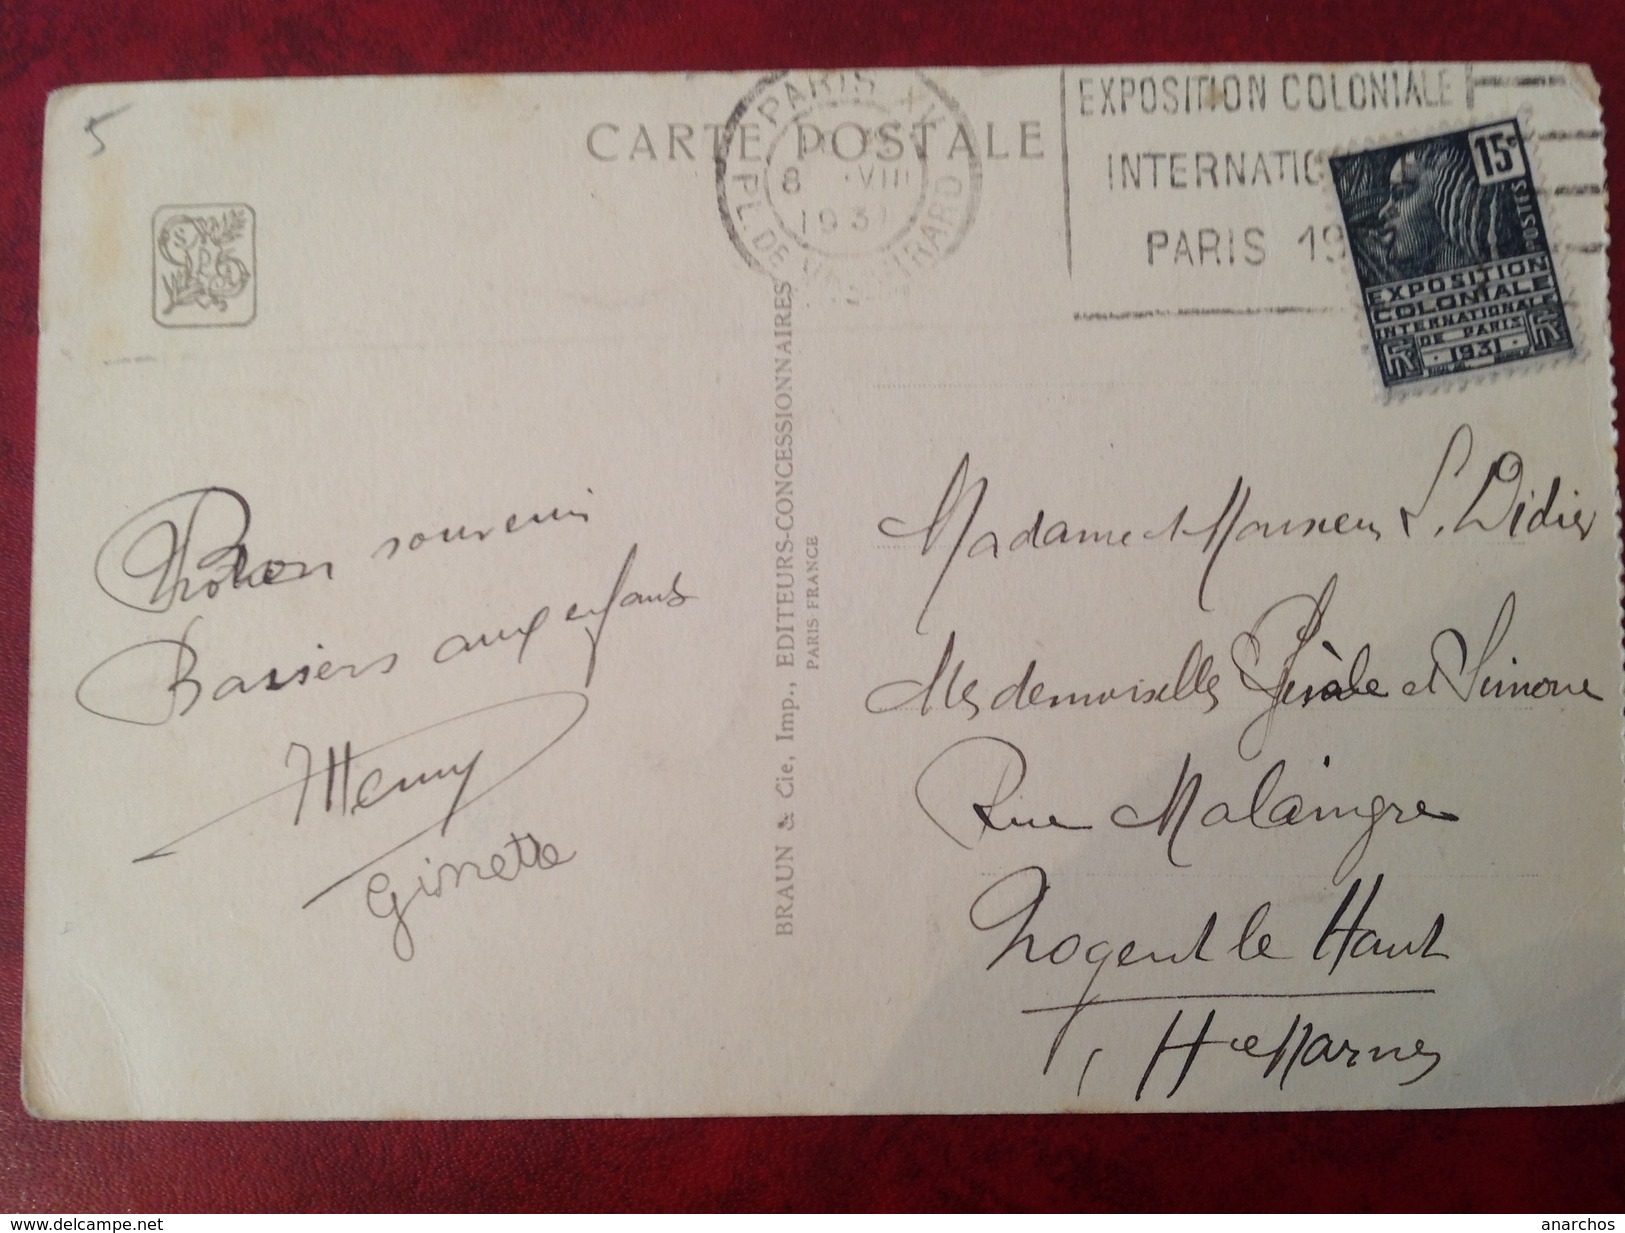 5
CARTE POSTALE
PARIS XV
PL. DE
8 VIII
1931
EXPOSITION COLONIALE
INTERNATIO
PARIS 19
15c
POSTES
EXPOSITION
COLONIALE
INTERNATIONALE
DE PARIS
1931
RF RF
BRAUN & Cie, Imp., EDITEURS-CONCESSIONNAIRES
PARIS FRANCE
Bon souvenir
Baisers aux enfants
Henry
Ginette
Madame et Monsieur L. Didier
Mesdemoiselles Gisèle et Simone
Rue Malaingre
Nogent le Haut
Hte Marne
www.delcampe.net
anarchos